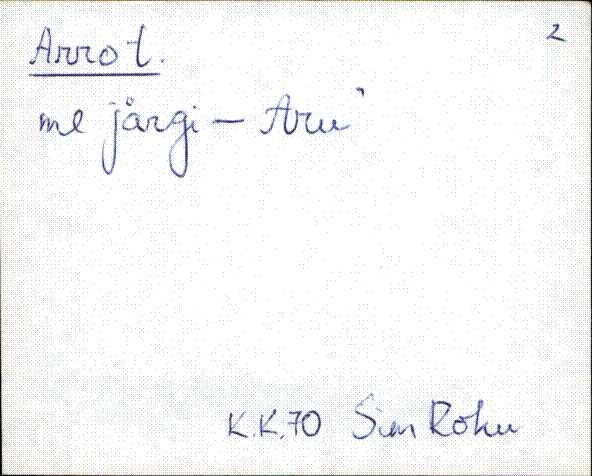 2
Arrot.
me järgi – Aru'
K.K.70 Sim Rohu